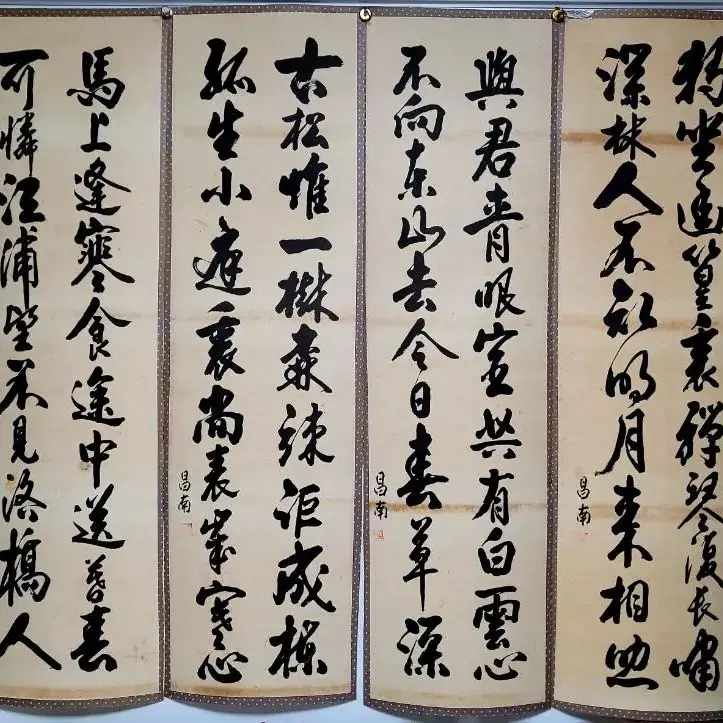 獨坐幽篁裏彈琴復長嘯
深林人不知明月来相照
昌南
與君青眼客共有白雲心
不向東山去今日春草深
昌南
古松惟一樹森竦詎成
孤生小庭裏尚表歲寒心
昌南
馬上逢寒食途中送暮春
可憐江浦望不見洛橋人